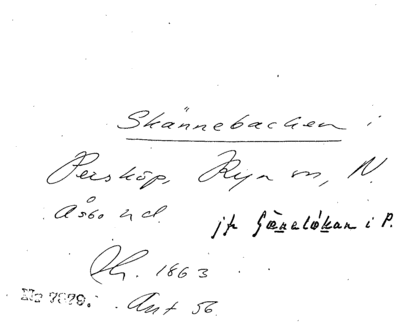 Skännebacken i
Persköp, Ryn sn, N.
Åsbo hd.
jfr Gänelókan i P.
Th. 1863
No 7679. Ant 56